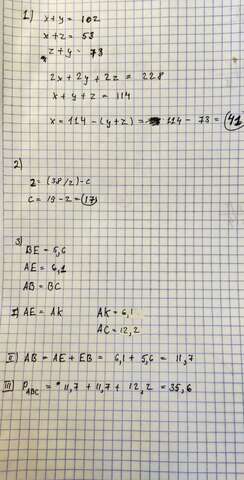 1) x+y = 102
x+z = 53
z+y = 73
2x + 2y + 2z = 228
x+y+z = 114
x = 114 - (y+z) = 114 - 73 = 41
2)
2 = (38/2) - c
c = 19 - 2 = 17
3)
BE = 5,6
AE = 6,1
AB = BC
I) AE = AK AK = 6,1
AC = 12,2
II AB = AE + EB = 6,1 + 5,6 = 11,7
III P ABC = 11,7 + 11,7 + 12,2 = 35,6